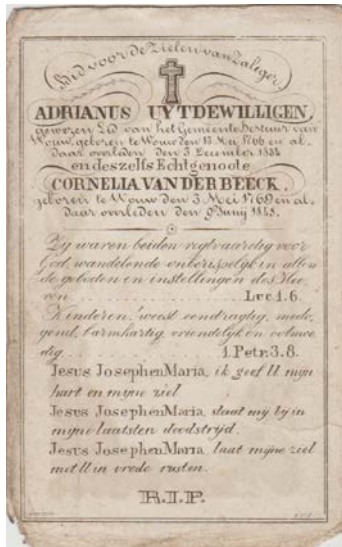 Bid voor de Zielen van Zaliger,
ADRIANUS UYTDEWILLIGEN,
gewezen Lid van het Gemeente Bestuur van
Wouw, geboren te Wouw den 13 Mei 1766 en al-
daar overleden den 3 December 1834
en deszelfs Echtgenoote
CORNELIA VAN DER BEECK,
geboren te Wouw den 3 Mei 1769 en al-
daar overleden den 9 Junij 1845.
Zij waren beiden regtvaardig voor
God, wandelende onberispelijk in allen
de geboden en instellingen des Hee-
ren. Luc 1.6.
Kinderen, weest eendragtig, mede-
gend, barmhartig, vriendelijk en ootmoe-
dig. 1 Petr. 3.8.
Jesus Joseph en Maria, ik geef U mijn
hart en mijne ziel
Jesus Joseph en Maria, staat mij bij in
mijne laatsten doodstrijd.
Jesus Joseph en Maria, laat mijne ziel
met U in vrede rusten.
R.I.P.